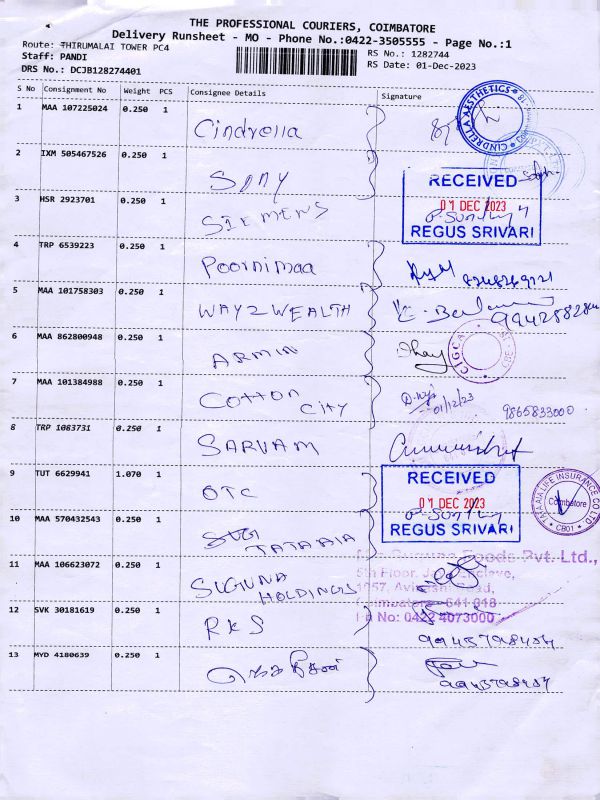 THE PROFESSIONAL COURIERS, COIMBATORE
Delivery Runsheet - MO - Phone No.:0422-3505555 - Page No.:1
Route: THIRUMALAI TOWER PC4
RS No.: 1282744
Staff: PANDI
RS Date: 01-Dec-2023
DRS No.: DCJB128274401
S No Consignment No Weight PCS Consignee Details Signature
1 MAA 107225024 0.250 1 Cindrella
CINDRELLA AESTHETICS
2 IXM 505467526 0.250 1 Sony
RECEIVED
3 HSR 2923701 0.250 1 SIEMENS
01 DEC 2023
REGUS SRIVARI
4 TRP 6539223 0.250 1 Poornimaa
5 MAA 101758303 0.250 1 WAY2WEALTH
6 MAA 862800948 0.250 1 ARMIN
7 MAA 101384988 0.250 1 Cotton City
01/12/23
9865833000
8 TRP 1083731 0.250 1 SARVAM
9 TUT 6629941 1.070 1 OTC
RECEIVED
01 DEC 2023
REGUS SRIVARI
TATA AIA LIFE INSURANCE CO.LTD
Coimbatore
CB01
10 MAA 570432543 0.250 1 TATA AIA
11 MAA 106623072 0.250 1 SUGUNA HOLDINGS
Foods Pvt. Ltd.,
5th Floor,
Coimbatore - 641 018
Ph No: 0422 4073000
12 SVK 30181619 0.250 1 RKS
13 MYD 4180639 0.250 1